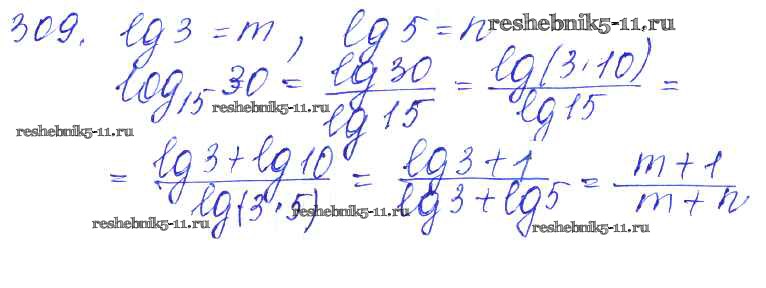 309. lg 3 = m, lg 5 = n reshebnik5-11.ru
log₁₅ 30 = lg 30 / lg 15 = lg(3·10) / lg 15 =
reshebnik5-11.ru
reshebnik5-11.ru
= lg 3 + lg 10 / lg(3·5) = lg 3 + 1 / lg 3 + lg 5 = m + 1 / m + n
reshebnik5-11.ru reshebnik5-11.ru
reshebnik5-11.ru